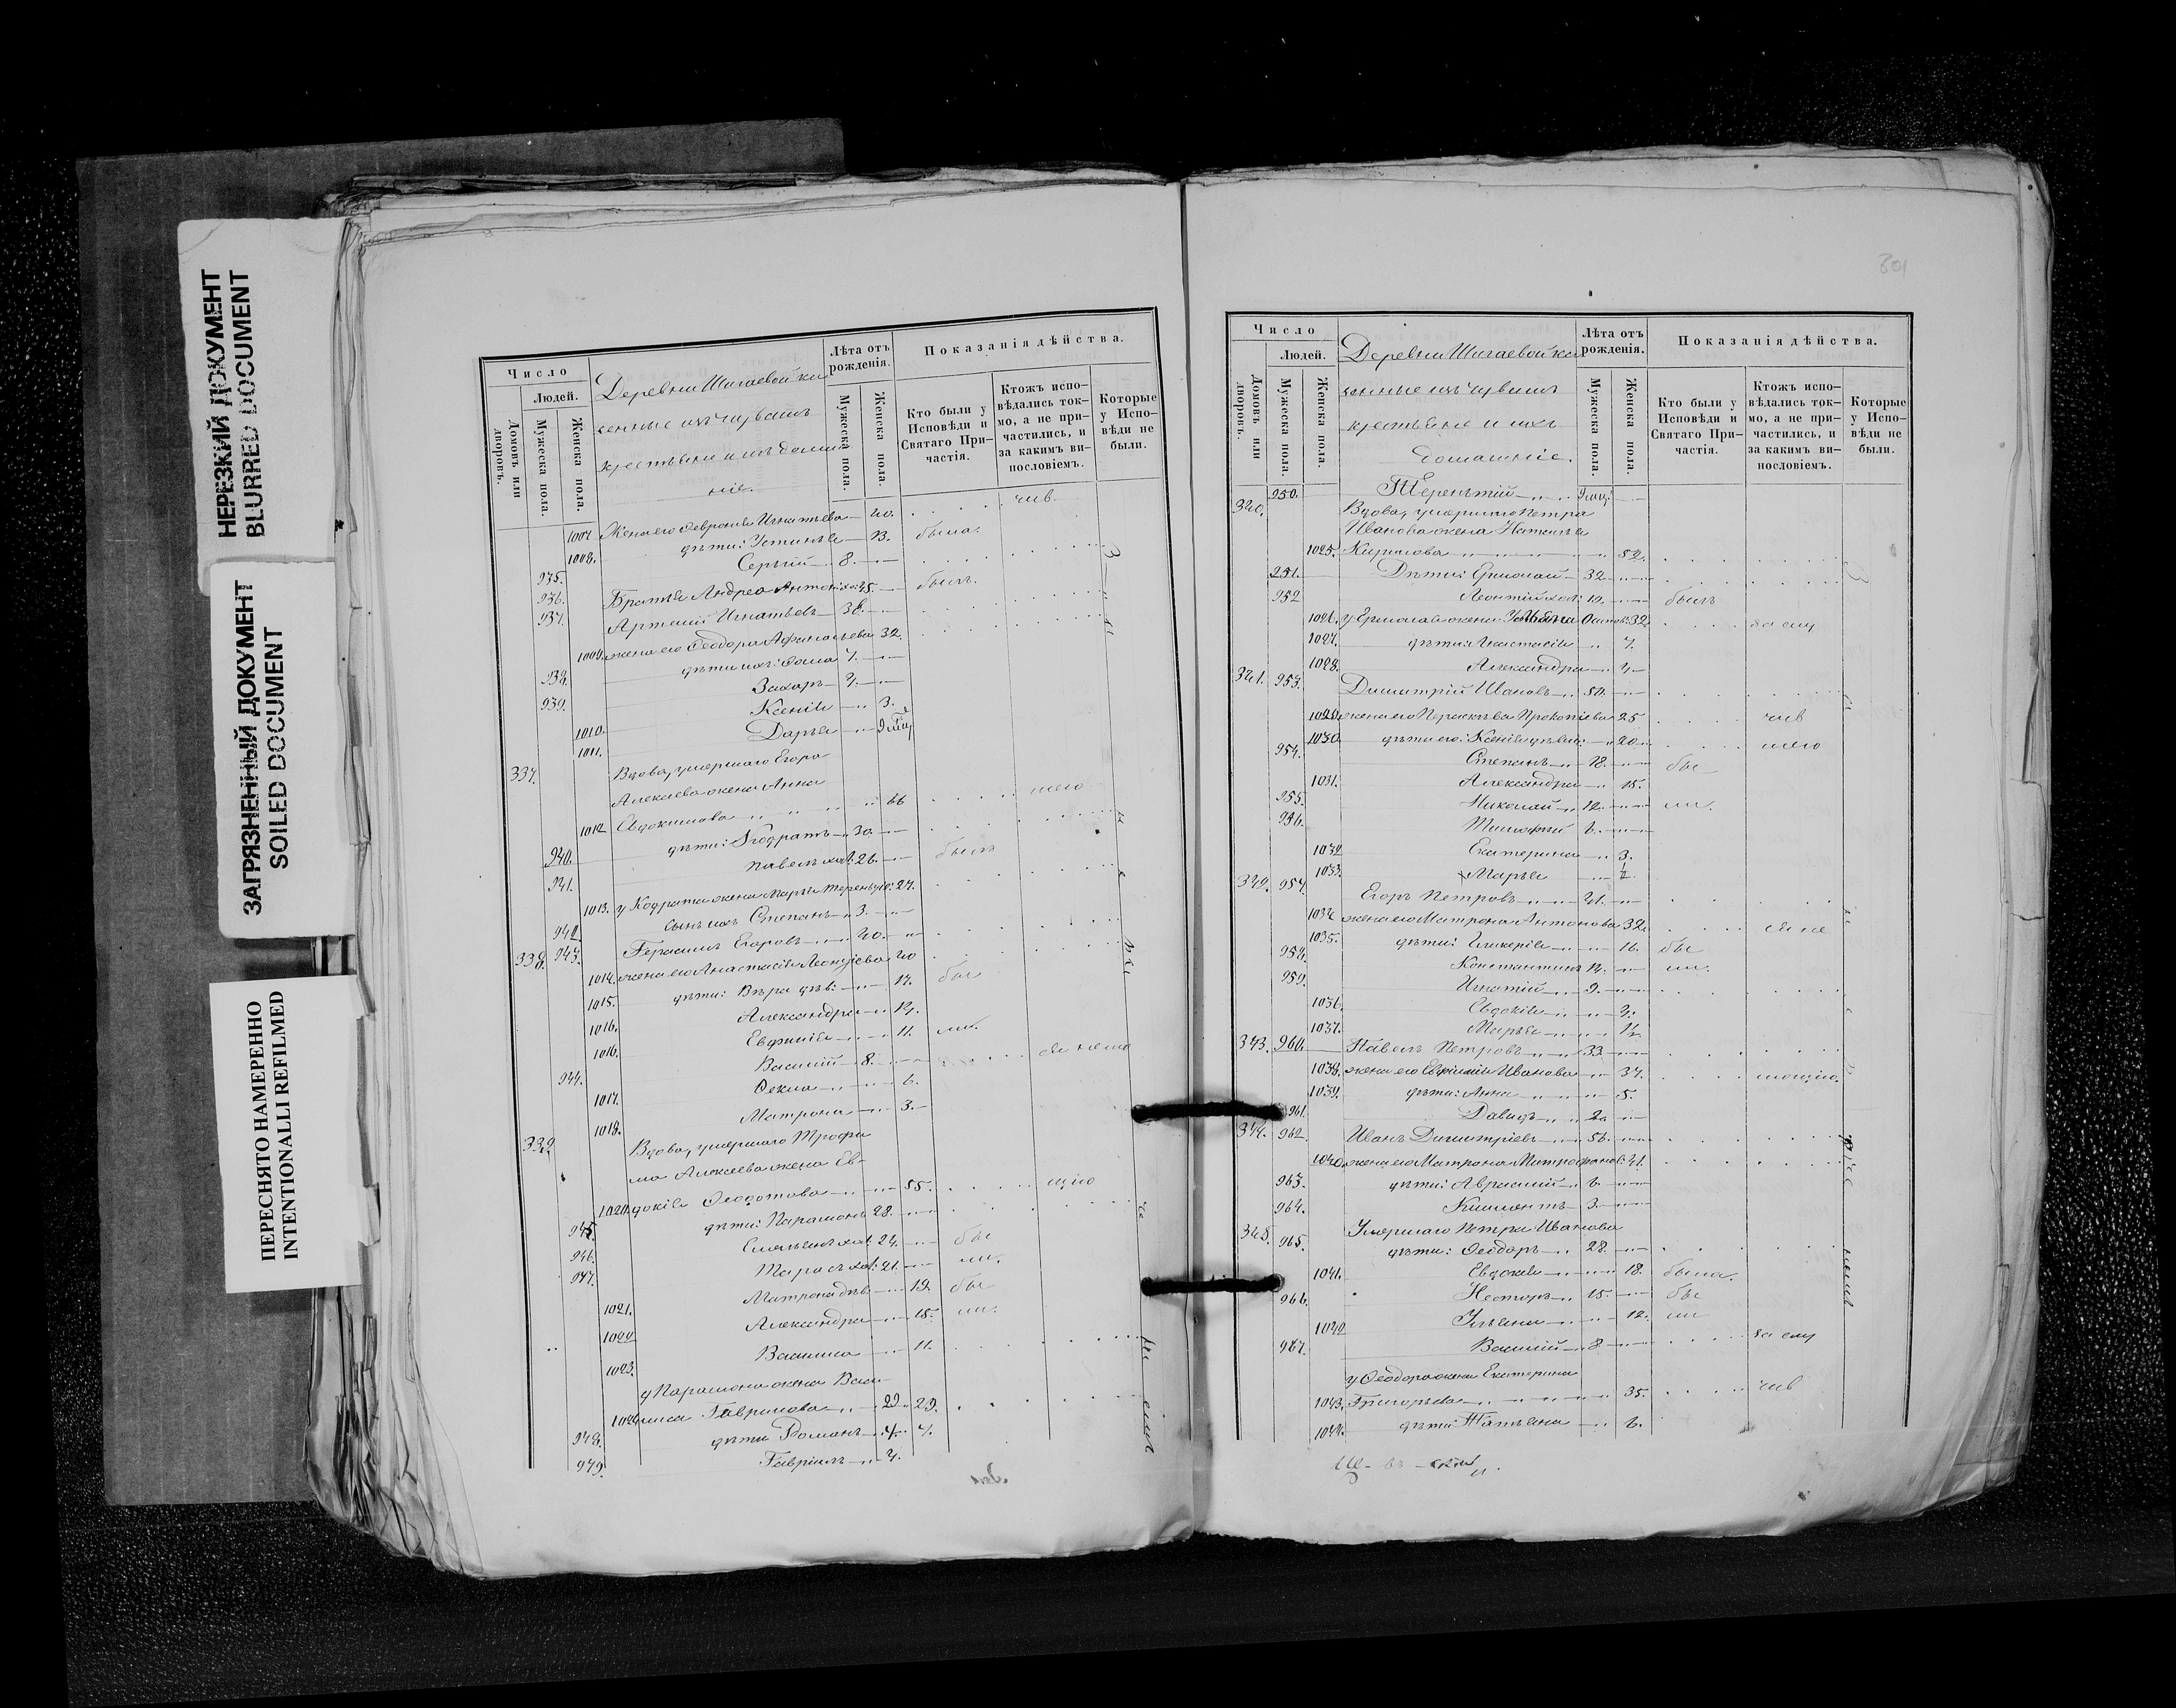 НЕРЕЗКИЙ ДОКУМЕНТ
BLURRED DOCUMENT
ЗАГРЯЗНЕННЫЙ ДОКУМЕНТ
SOILED DOCUMENT
ПЕРЕСНЯТО НАМЕРЕННО
INTENTIONALLI REFILMED
Число
Людей.
Домовъ или дворовъ.
Мужеска пола.
Женска пола.
Деревни Шигаевой ка
зенные изъ чувашъ
крестьяне и ихъ домаш
ніе.
Лѣта отъ рожденія.
Мужеска пола.
Женска пола.
Показанія дѣйства.
Кто были у Исповѣди и Святаго Причастія.
Ктожъ исповѣдались токмо, а не причастились, и за какимъ винословіемъ.
Которые у Исповѣди не были.
1007. Жена его Феврония Игнатьева 40.
1008. дѣти: Устинья 13. была.
935. Сергій 8.
936. Братья Андрея Антоній хол: 45. былъ
937. Артемій Игнатьевъ 38.
1009. жена его Феодора Афанасьева 32
938. дѣти ихъ: Фома 7.
939. Захаръ 4.
1010. Ксенія 3.
1011. Дарья
337. Вдова, умершаго Егора
Алексѣева жена Анна
1012 Евдокимова 66
940. дѣти: Кодратъ 30.
941. Павелъ хол: 26. былъ
1013. у Кодрата жена Марья Терентьев: 27.
942. сынъ ихъ Степанъ 3.
338. 943. Герасимъ Егоровъ 40.
1014. жена его Анастасія Леонтьева 40
1015. дѣти: Вѣра дѣв: 17. бы
1016. Александра 14.
1016. Евфимія 11. ли.
944. Василій 8.
1017. Фекла 6.
1018. Матрона 3.
339 Вдова, умершаго Трофи
ма Алексѣева жена Ев-
1020. докія Федотова 55.
945. дѣти: Парамонъ 28.
946. Емельянъ хол: 24. бы
947. Тарасъ хол: 21. ли.
1021. Матрона дѣв: 19. бы
1022 Александра 15. ли.
1023. Василиса 11.
у Парамона жена Васи-
1024. лиса Гаврилова 29.
948. дѣти Романъ 4.
949. Гавріилъ 4.
301
Число
Людей.
Домовъ или дворовъ.
Мужеска пола.
Женска пола.
Деревни Шигаевой ка
зенные изъ чувашъ
крестьяне и ихъ
домашніе.
Лѣта отъ рожденія.
Мужеска пола.
Женска пола.
Показанія дѣйства.
Кто были у Исповѣди и Святаго Причастія.
Ктожъ исповѣдались токмо, а не причастились, и за какимъ винословіемъ.
Которые у Исповѣди не были.
950. Терентій
340. Вдова, умершаго Петра
Иванова жена Наталья
1025. Кирилова 52.
951. Дѣти: Ермолай 32
952 Леонтій хол: 19. былъ
1026. у Ермолая жена Ульяна Осипов: 32
1027. дѣти: Анастасія 7.
1028. Александра 4.
341. 953. Димитрій Ивановъ 50.
1029. жена его Параскева Прокопіева 25
1030. дѣти его: Ксенія дѣвиц: 20.
954. Степанъ 18. бы
1031. Александра 15.
955. Николай 12. ли.
956. Тимофей 6.
1032 Екатерина 3.
1033. Марья
342. 957. Егоръ Петровъ 41.
1034 жена его Матрона Антонова 32.
1035. дѣти: Гликерія 16. бы
958. Константинъ 14. ли.
959. Игнатій 9.
1036. Евдокія 4.
1037. Марья
343. 960. Павелъ Петровъ 33.
1038. жена его Евфимія Иванова 34.
1039. дѣти: Анна 5.
961. Давидъ 2.
344. 962. Иванъ Димитріевъ 56.
1040. жена его Матрона Митрофанов: 41.
963. дѣти: Аврамій 6.
964. Климентъ 3.
345. Умершаго Петра Иванова
965. дѣти: Феодоръ 28.
1041. Евдокія 18. была.
966. Несторъ 15. бы
1042 Ульяна 12. ли
967. Василій 8.
у Феодора жена Екатерина
1043. Григорьева 35.
1044. дѣти: Татьяна 6.